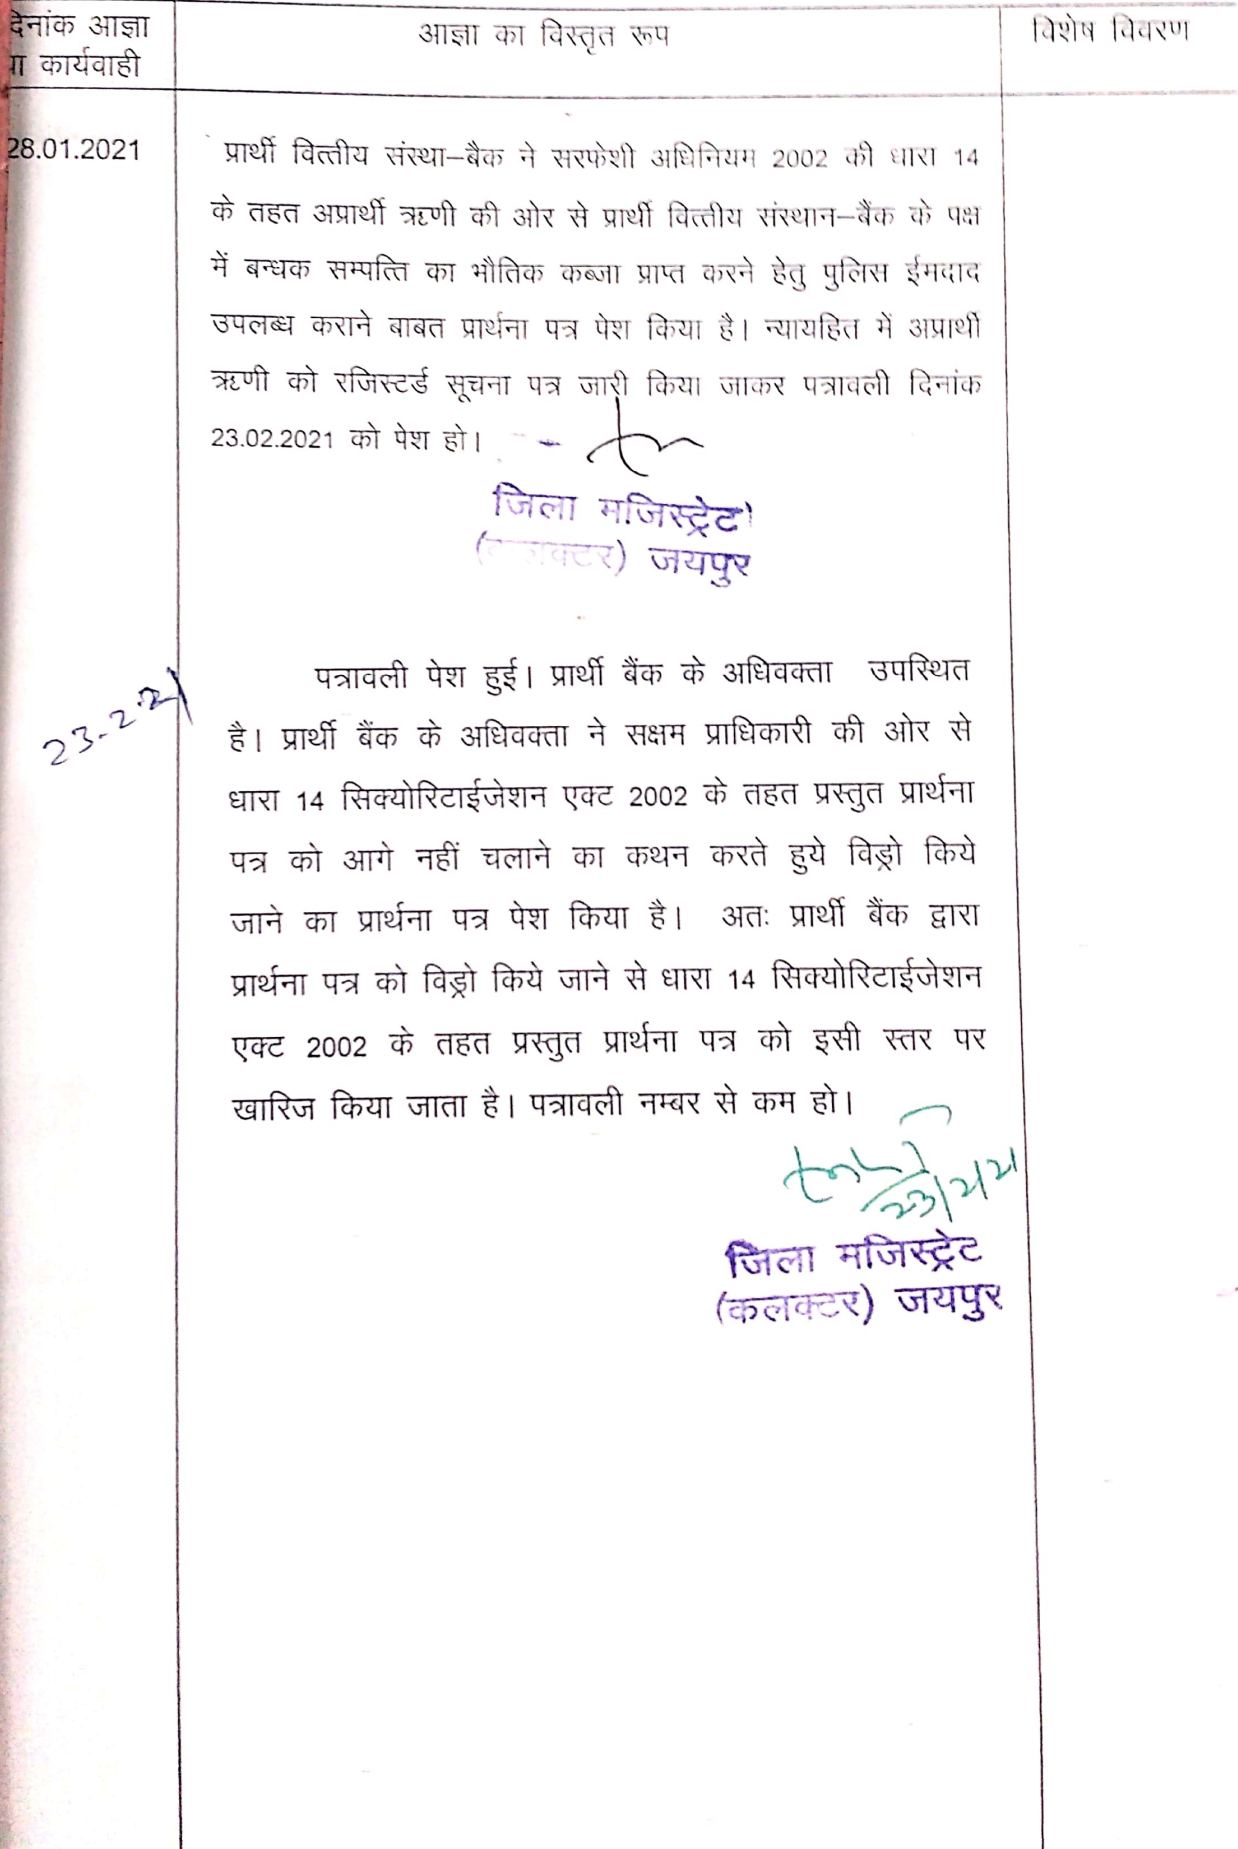 दिनांक आज्ञा
या कार्यवाही
आज्ञा का विस्तृत रूप
विशेष विवरण
28.01.2021
प्रार्थी वित्तीय संस्था–बैंक ने सरफेशी अधिनियम 2002 की धारा 14
के तहत अप्रार्थी ऋणी की ओर से प्रार्थी वित्तीय संस्थान–बैंक के पक्ष
में बन्धक सम्पत्ति का भौतिक कब्जा प्राप्त करने हेतु पुलिस ईमदाद
उपलब्ध कराने बाबत प्रार्थना पत्र पेश किया है। न्यायहित में अप्रार्थी
ऋणी को रजिस्टर्ड सूचना पत्र जारी किया जाकर पत्रावली दिनांक
23.02.2021 को पेश हो।
जिला मजिस्ट्रेट
(कलक्टर) जयपुर
23-2-21
पत्रावली पेश हुई। प्रार्थी बैंक के अधिवक्ता उपस्थित
है। प्रार्थी बैंक के अधिवक्ता ने सक्षम प्राधिकारी की ओर से
धारा 14 सिक्योरिटाईजेशन एक्ट 2002 के तहत प्रस्तुत प्रार्थना
पत्र को आगे नहीं चलाने का कथन करते हुये विड्रो किये
जाने का प्रार्थना पत्र पेश किया है। अतः प्रार्थी बैंक द्वारा
प्रार्थना पत्र को विड्रो किये जाने से धारा 14 सिक्योरिटाईजेशन
एक्ट 2002 के तहत प्रस्तुत प्रार्थना पत्र को इसी स्तर पर
खारिज किया जाता है। पत्रावली नम्बर से कम हो।
23/2/21
जिला मजिस्ट्रेट
(कलक्टर) जयपुर